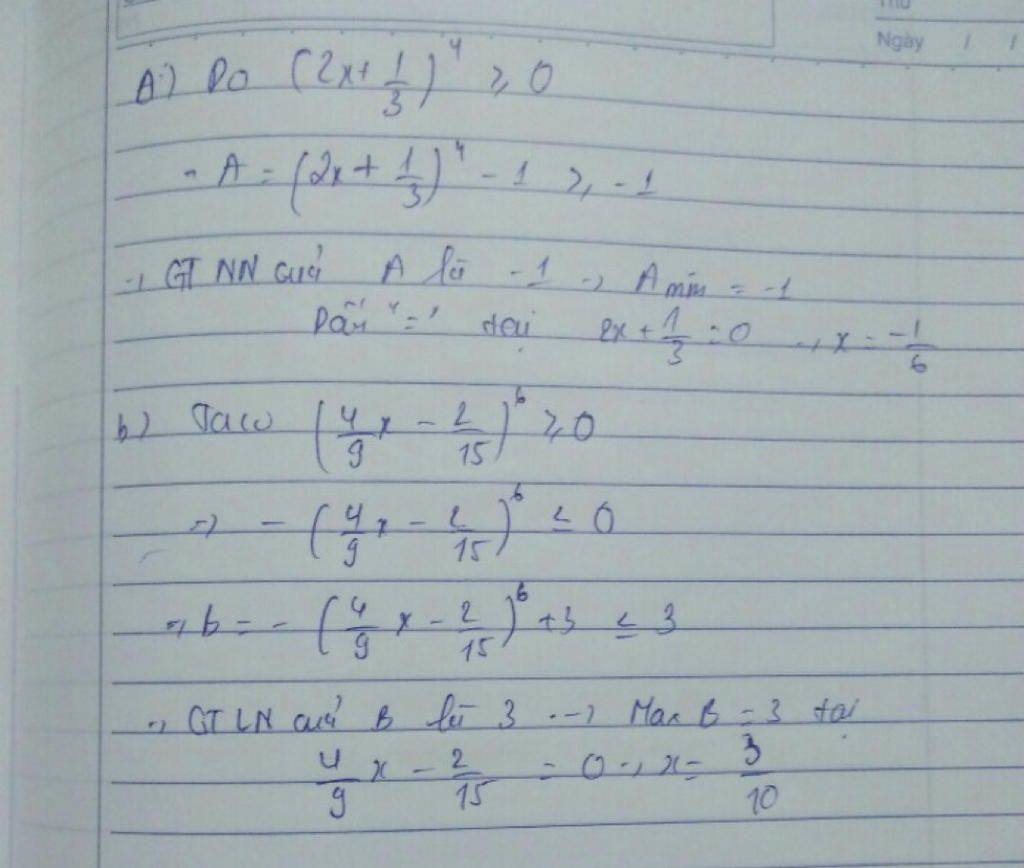 Thứ
Ngày / /
A) Do (2x + 1/3)^4 ≥ 0
→ A = (2x + 1/3)^4 - 1 ≥ -1
→ GTNN của A là -1 → A min = -1
Dấu "=" tại 2x + 1/3 = 0 → x = -1/6
b) Ta có (4/9 x - 2/15)^6 ≥ 0
=> - (4/9 x - 2/15)^6 ≤ 0
=> b = - (4/9 x - 2/15)^6 + 3 ≤ 3
→ GTLN của B là 3 → Max B = 3 tại
4/9 x - 2/15 = 0 → x = 3/10